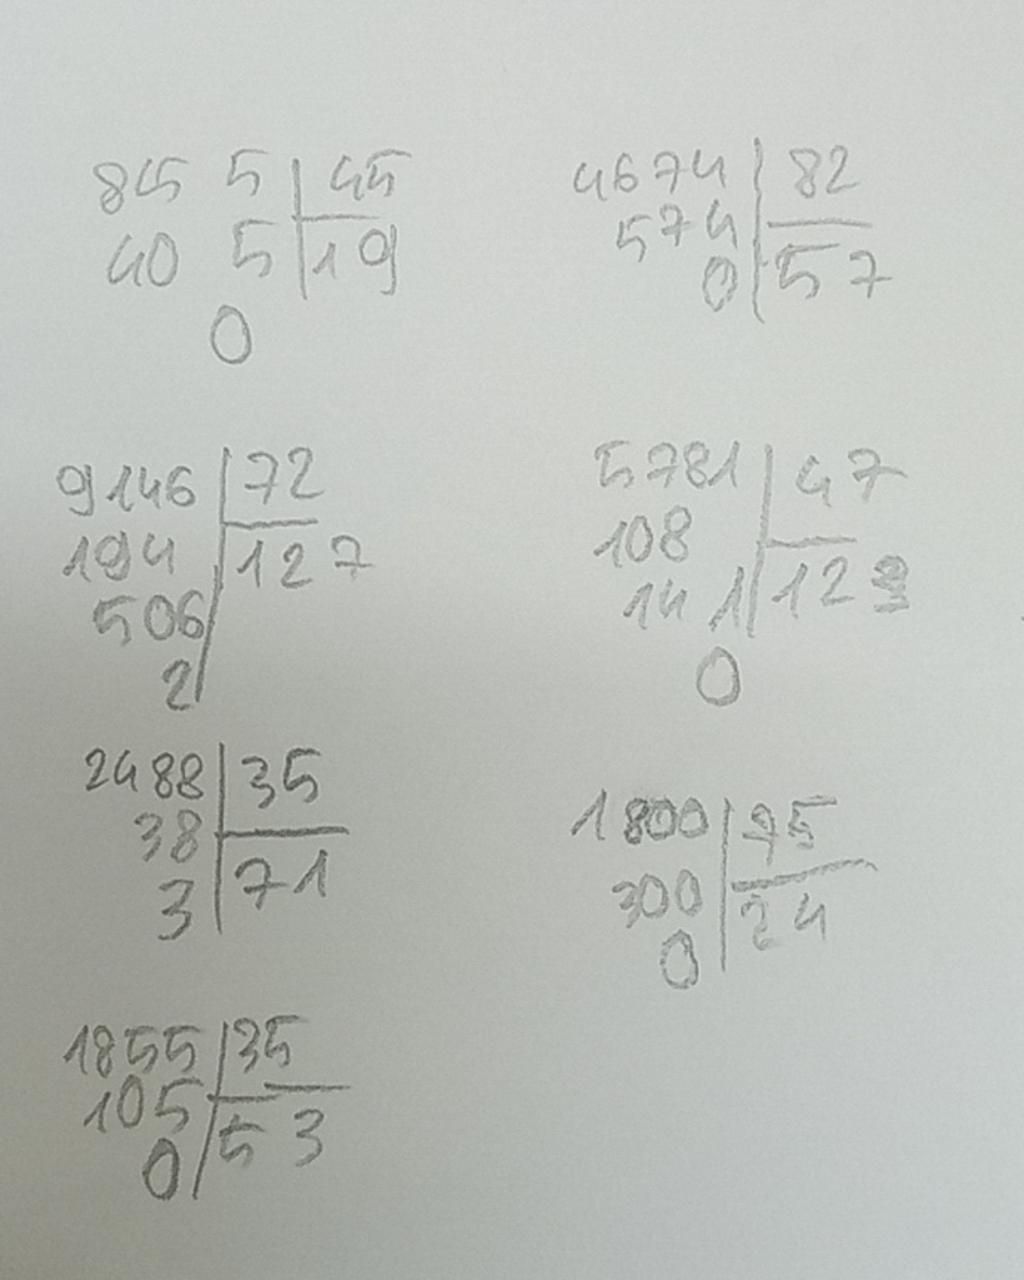 845 5 45
40 5 19
0
4674 82
574 57
0
9146 72
194 127
506
2
5781 47
108 123
14 1
0
2488 35
38 71
3
1800 75
300 24
0
1855 35
105 53
0